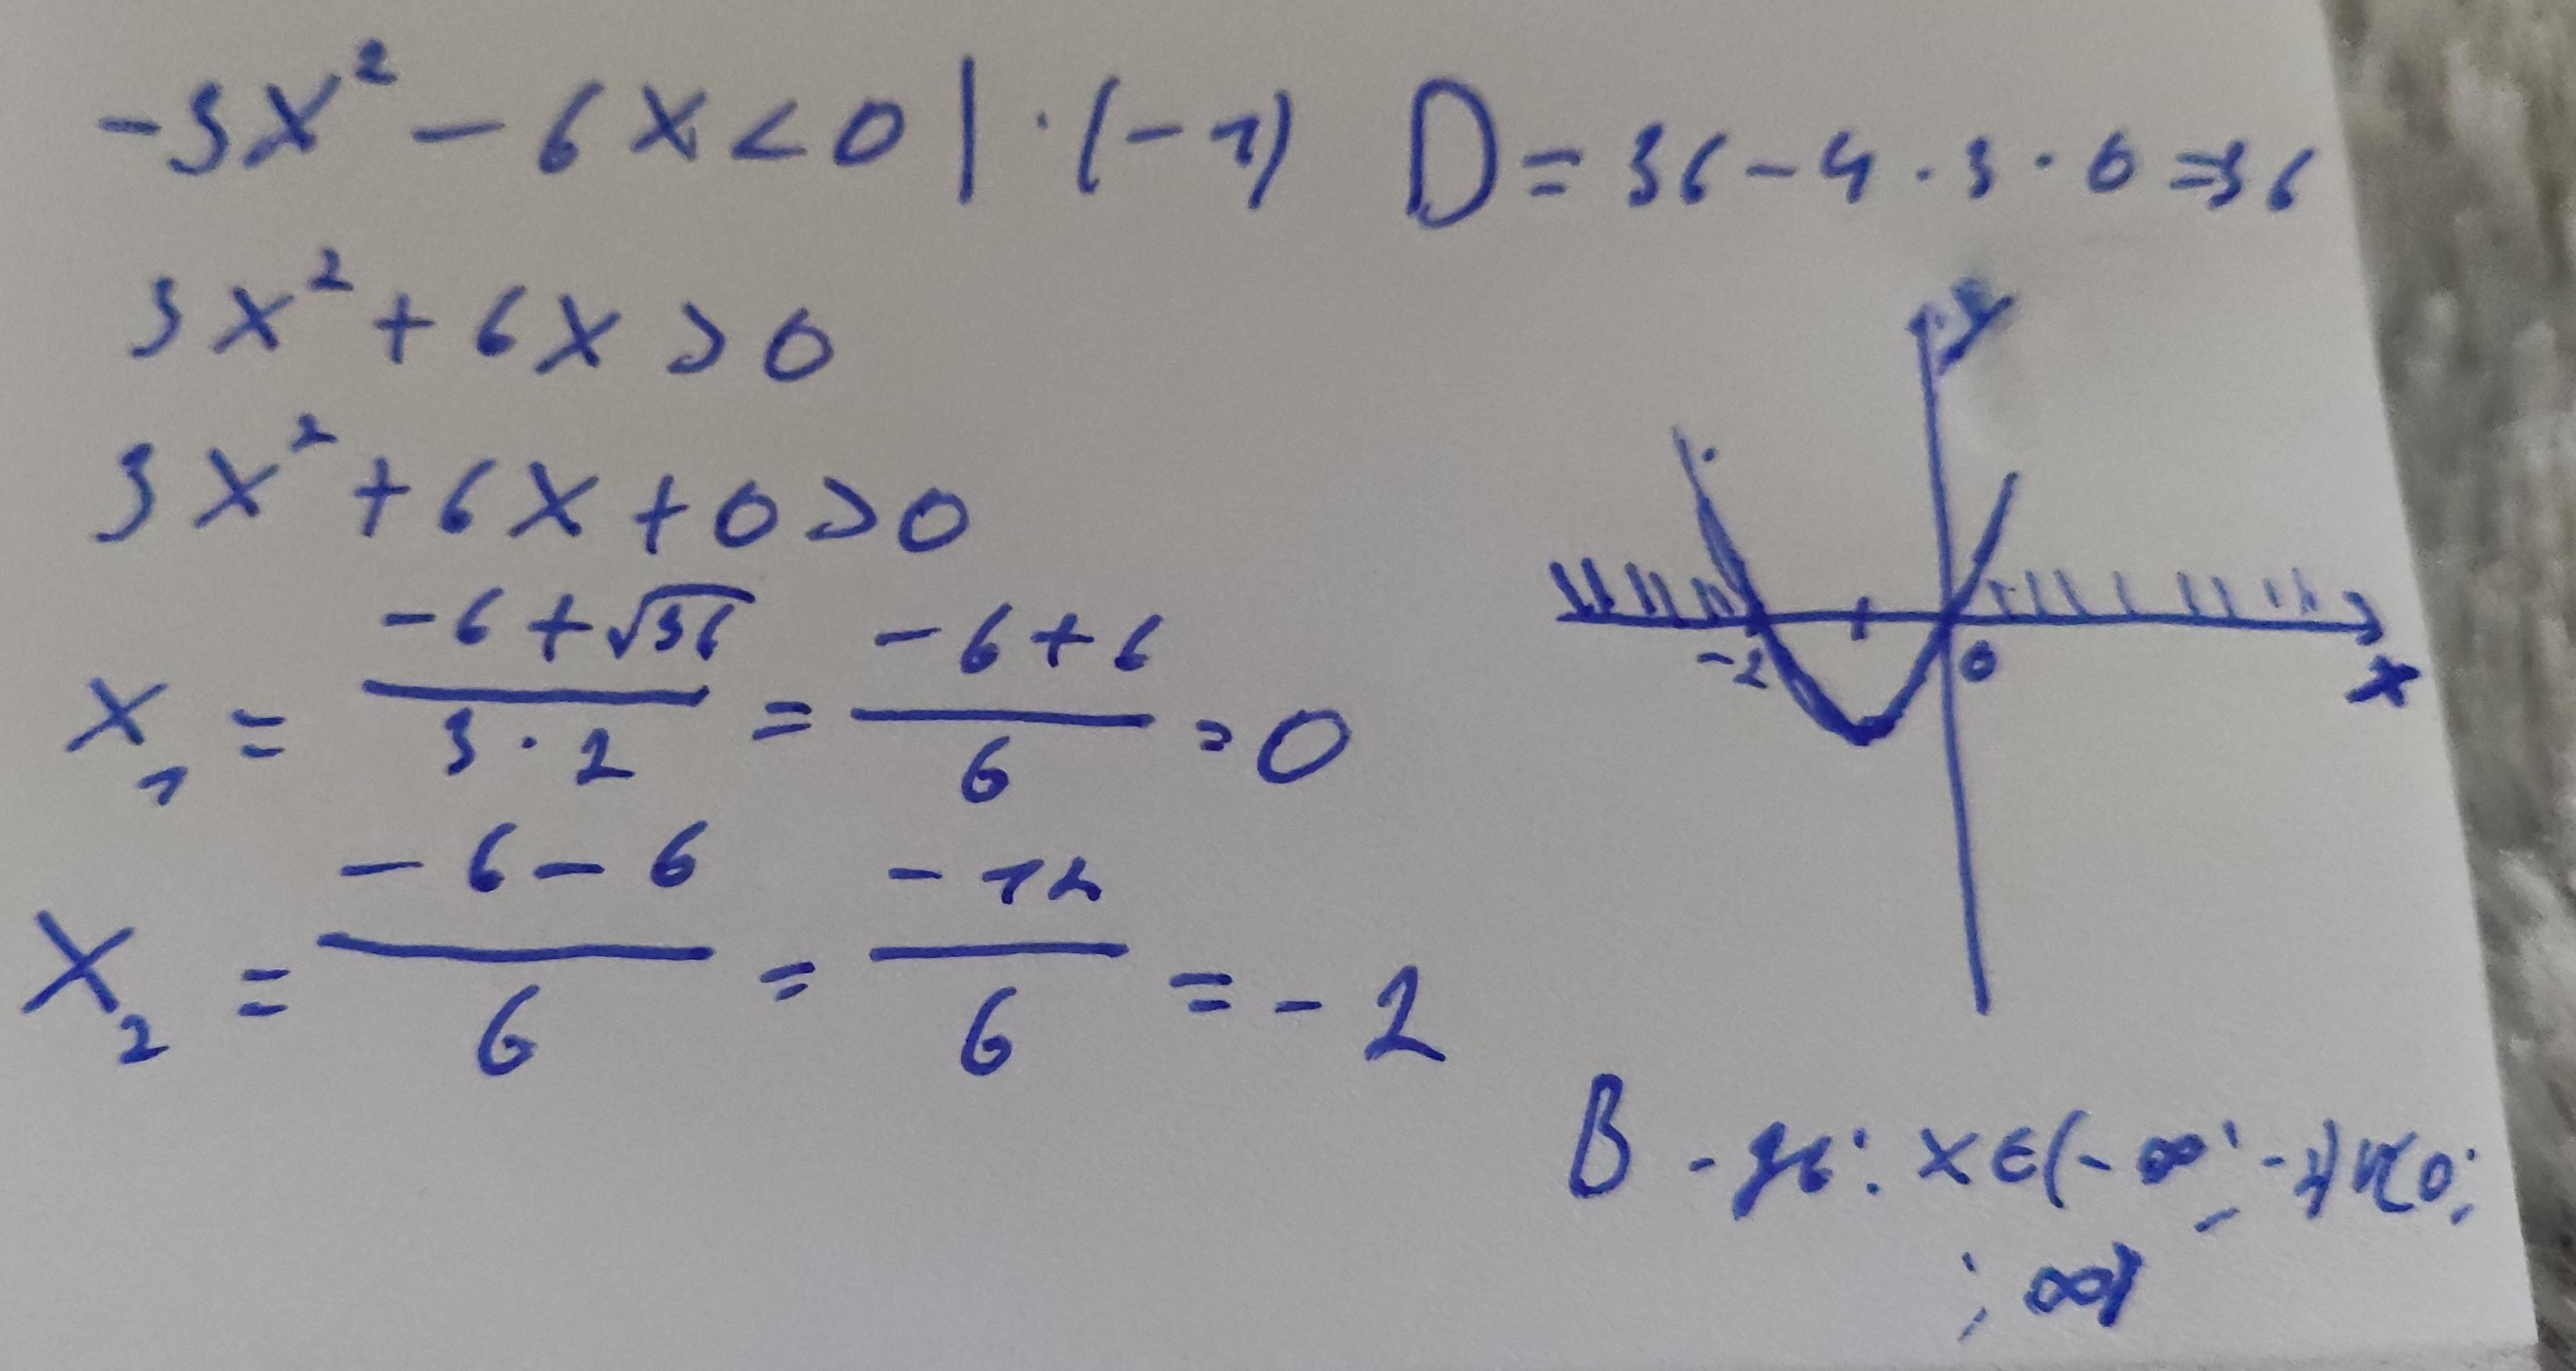 -3x² - 6x < 0 | · (-1)
D = 36 - 4 · 3 · 0 = 36
3x² + 6x > 0
3x² + 6x + 0 > 0
x₁ = (-6 + √36)/(3 · 2) = (-6 + 6)/6 = 0
x₂ = (-6 - 6)/6 = -12/6 = -2
y
-2 0
x
В - дь: x ∈ (-∞; -2) (0;
; ∞)